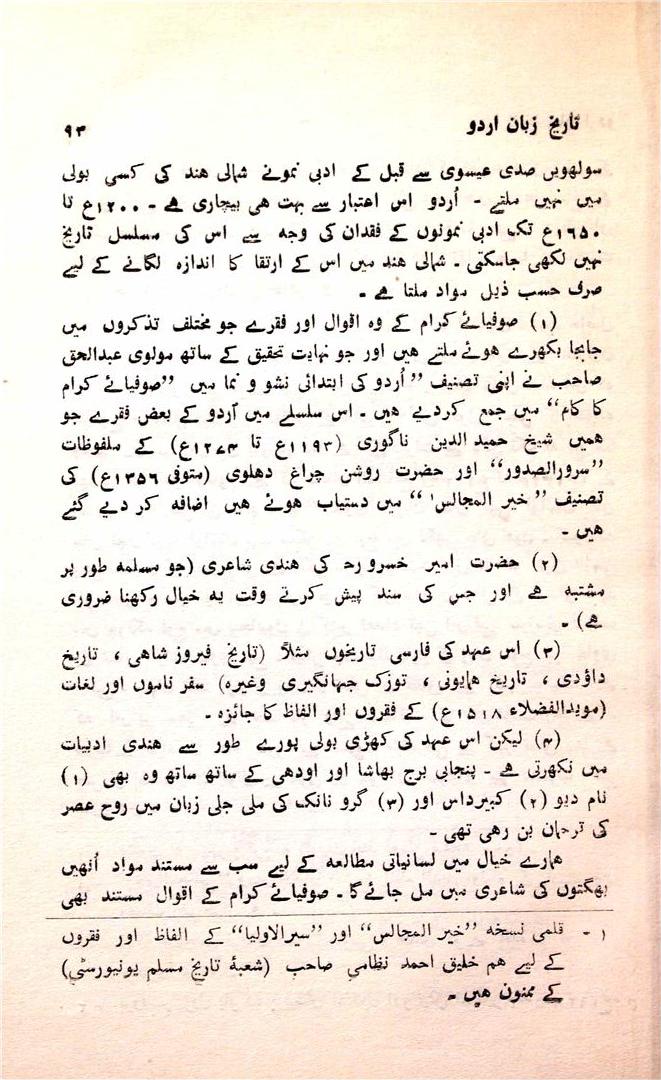 تاریخ زبان اردو
۹۳
سولھویں صدی عیسوی سے قبل کے ادبی نمونے شمالی ھند کی کسی بولی
میں نہیں ملتے ۔ اُردو اس اعتبار سے بہت ھی بیچاری ھے ۔ ۱۲۰۰ع تا
۱۶۵۰ع تک ادبی نمونوں کے فقدان کی وجہ سے اس کی مسلسل تاریخ
نہیں لکھی جاسکتی ۔ شمالی ھند میں اس کے ارتقا کا اندازہ لگانے کے لیے
صرف حسب ذیل مواد ملتا ھے ۔
(۱) صوفیائے کرام کے وہ اقوال اور فقرے جو مختلف تذکروں میں
جابجا بکھرے ھوئے ملتے ھیں اور جو نہایت تحقیق کے ساتھ مولوی عبدالحق
صاحب نے اپنی تصنیف ”اُردو کی ابتدائی نشو و نما میں ”صوفیائے کرام
کا کام““ میں جمع کردیے ھیں ۔ اس سلسلے میں اُردو کے بعض فقرے جو
ھمیں شیخ حمید الدین ناگوری (۱۱۹۳ع تا ۱۲۷۴ع) کے ملفوظات
”سرورالصدور“ اور حضرت روشن چراغ دھلوی (متوفی ۱۳۵۶ع) کی
تصنیف ”خیر المجالس۱“ میں دستیاب ھوئے ھیں اضافہ کر دیے گئے
ھیں ۔
(۲) حضرت امیر خسرو رح کی ھندی شاعری (جو مسلمہ طور پر
مشتبہ ھے اور جس کی سند پیش کرتے وقت یہ خیال رکھنا ضروری
ھے) ۔
(۳) اس عہد کی فارسی تاریخوں مثلاً (تاریخ فیروز شاھی ، تاریخ
داؤدی ، تاریخ ھمایونی ، توزک جہانگیری وغیرہ) سفر ناموں اور لغات
(مویدالفضلاء ۱۵۱۸ع) کے فقروں اور الفاظ کا جائزہ ۔
(۴) لیکن اس عہد کی کھڑی بولی پورے طور سے ھندی ادبیات
میں نکھرتی ھے ۔ پنجابی برج بھاشا اور اودھی کے ساتھ ساتھ وہ بھی (۱)
نام دیو (۲) کبیرداس اور (۳) گرو نانک کی ملی جلی زبان میں روح عصر
کی ترجمان بن رھی تھی ۔
ھمارے خیال میں لسانیاتی مطالعہ کے لیے سب سے مستند مواد اُنھیں
بھگتوں کی شاعری میں مل جائے گا ۔ صوفیائے کرام کے اقوال مستند بھی
۱ ۔ قلمی نسخہ ”خیر المجالس“ اور ”سیرالاولیا“ کے الفاظ اور فقروں
کے لیے ھم خلیق احمد نظامی صاحب (شعبۂ تاریخ مسلم یونیورسٹی)
کے ممنون ھیں ۔